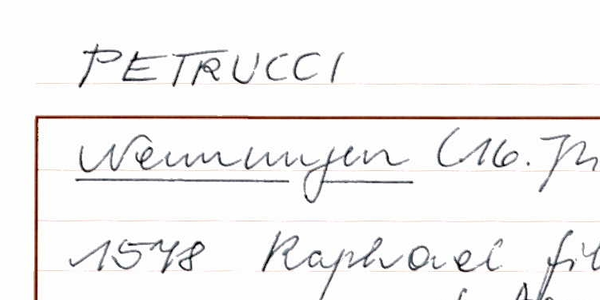 PETRUCCI
Nennungen (16. Jh
1548 Raphael fil